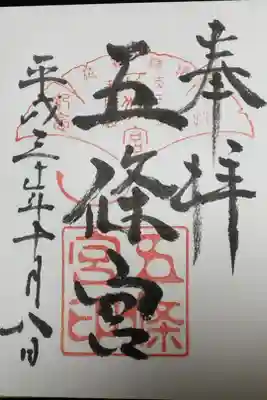 奉拝
五條宮
五條
宮印
平成三十年十月八日